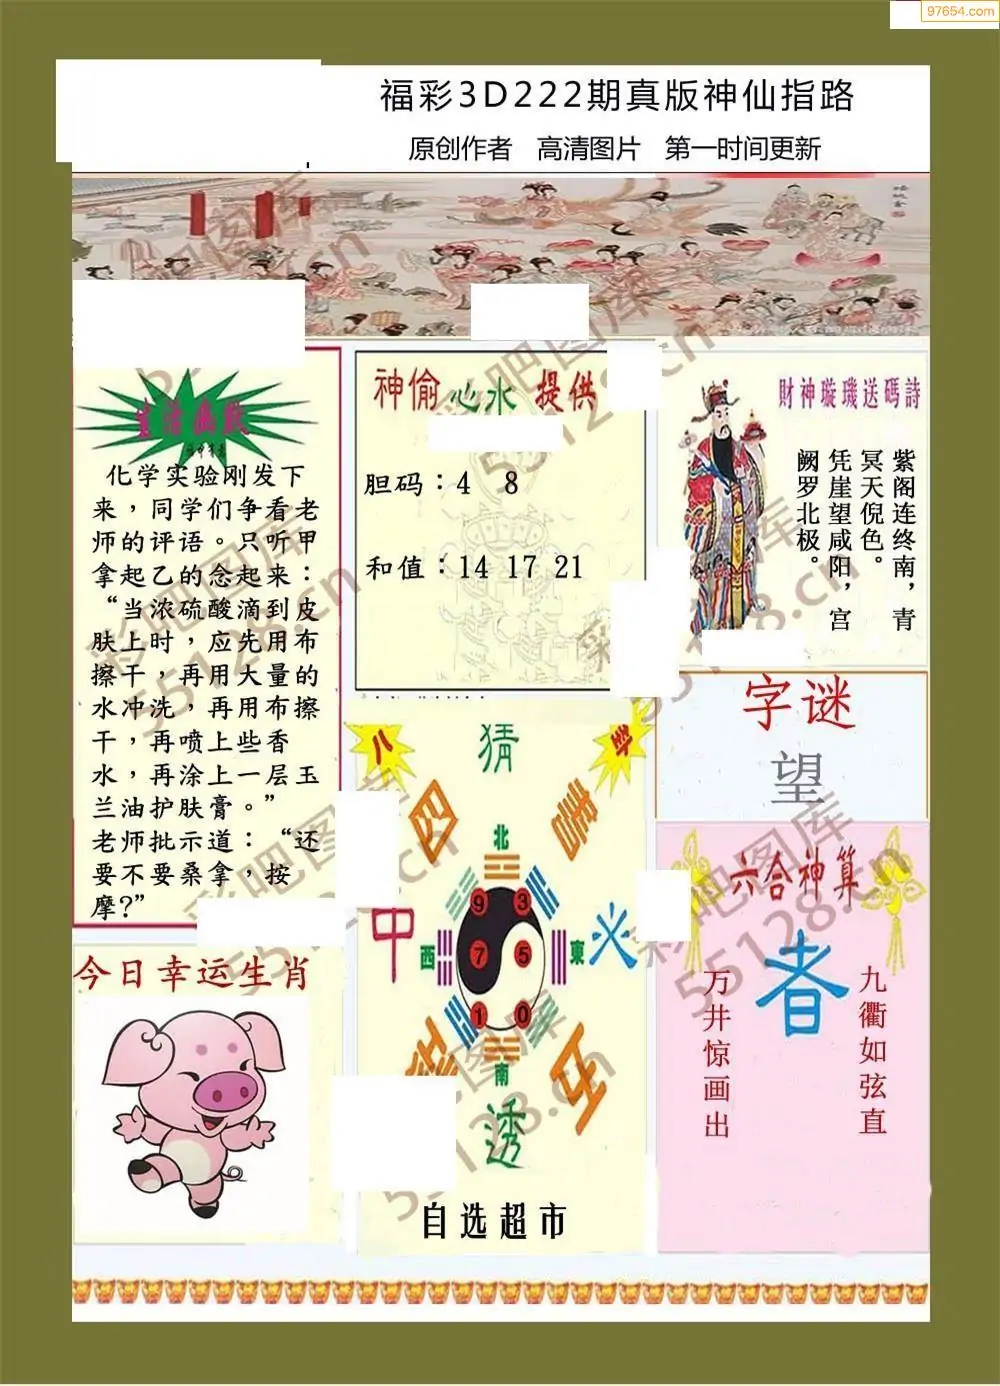 97654.com
福彩3D222期真版神仙指路
原创作者 高清图片 第一时间更新
生活幽默
化学实验刚发下
来，同学们争看老
师的评语。只听甲
拿起乙的念起来：
“当浓硫酸滴到皮
肤上时，应先用布
擦干，再用大量的
水冲洗，再用布擦
干，再喷上些香
水，再涂上一层玉
兰油护肤膏。”
老师批示道：“还
要不要桑拿，按
摩?”
今日幸运生肖
神偷心水提供
胆码：4 8
和值：14 17 21
八
卦
猜
北
西
東
南
9
3
7
5
1
0
中
火
透
自选超市
財神璇璣送碼詩
紫阁连终南，青
冥天倪色。
凭崖望咸阳，宫
阙罗北极。
字谜
望
六合神算
者
九衢如弦直
万井惊画出
彩吧图库
55128.cn
彩吧图库
55128.cn
彩吧图库
55128.cn
彩吧图库
55128.cn
彩吧图库
55128.cn